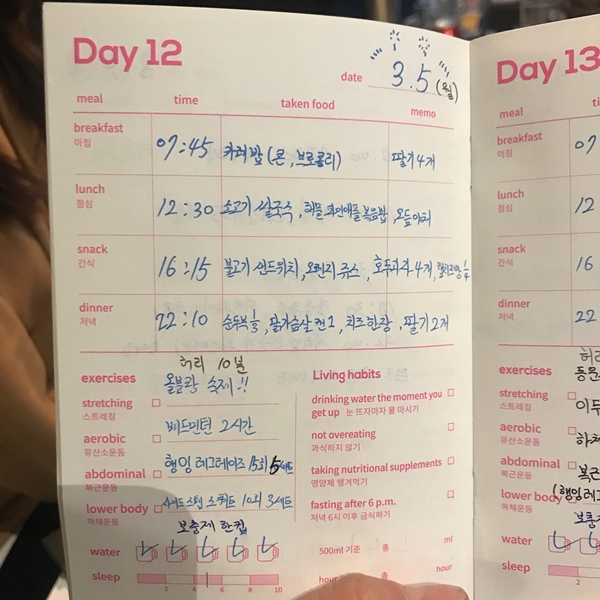 Day 12
date 3.5 (월)
meal time taken food memo
breakfast 07:45 카레밥 (콘, 브로콜리) 딸기 4개
아침
lunch 12:30 소고기 쌀국수, 해물 파인애플 볶음밥,
점심
snack 16:15 불고기 샌드위치, 오렌지 쥬스, 호두과자 4개,
간식
dinner 22:10 순두부 ½, 닭가슴살 캔 1, 치즈 한장, 딸기 2개
저녁
허리 10분
exercises 올블랑 숙제!!
stretching
스트레칭
배드민턴 2시간
aerobic
유산소운동
행잉 레그레이즈 15회 5세트
abdominal
복근운동
스쿼트 10회 3세트
lower body
하체운동
보충제 한컵
water
sleep 2 4 6 8 10
Living habits
drinking water the moment you
get up 눈 뜨자마자 물 마시기
not overeating
과식하지 않기
taking nutritional supplements
영양제 챙겨먹기
fasting after 6 p.m.
저녁 6시 이후 금식하기
500ml 기준 총 ml
hour 총 hour
Day 13
meal
breakfast 07
아침
lunch 12
점심
snack 16
간식
dinner 22
저녁
허리
exercises
stretching
스트레칭
aerobic
유산소운동
abdominal 복근
복근운동
lower body (행잉레그
하체운동
보충제
water
sleep 2